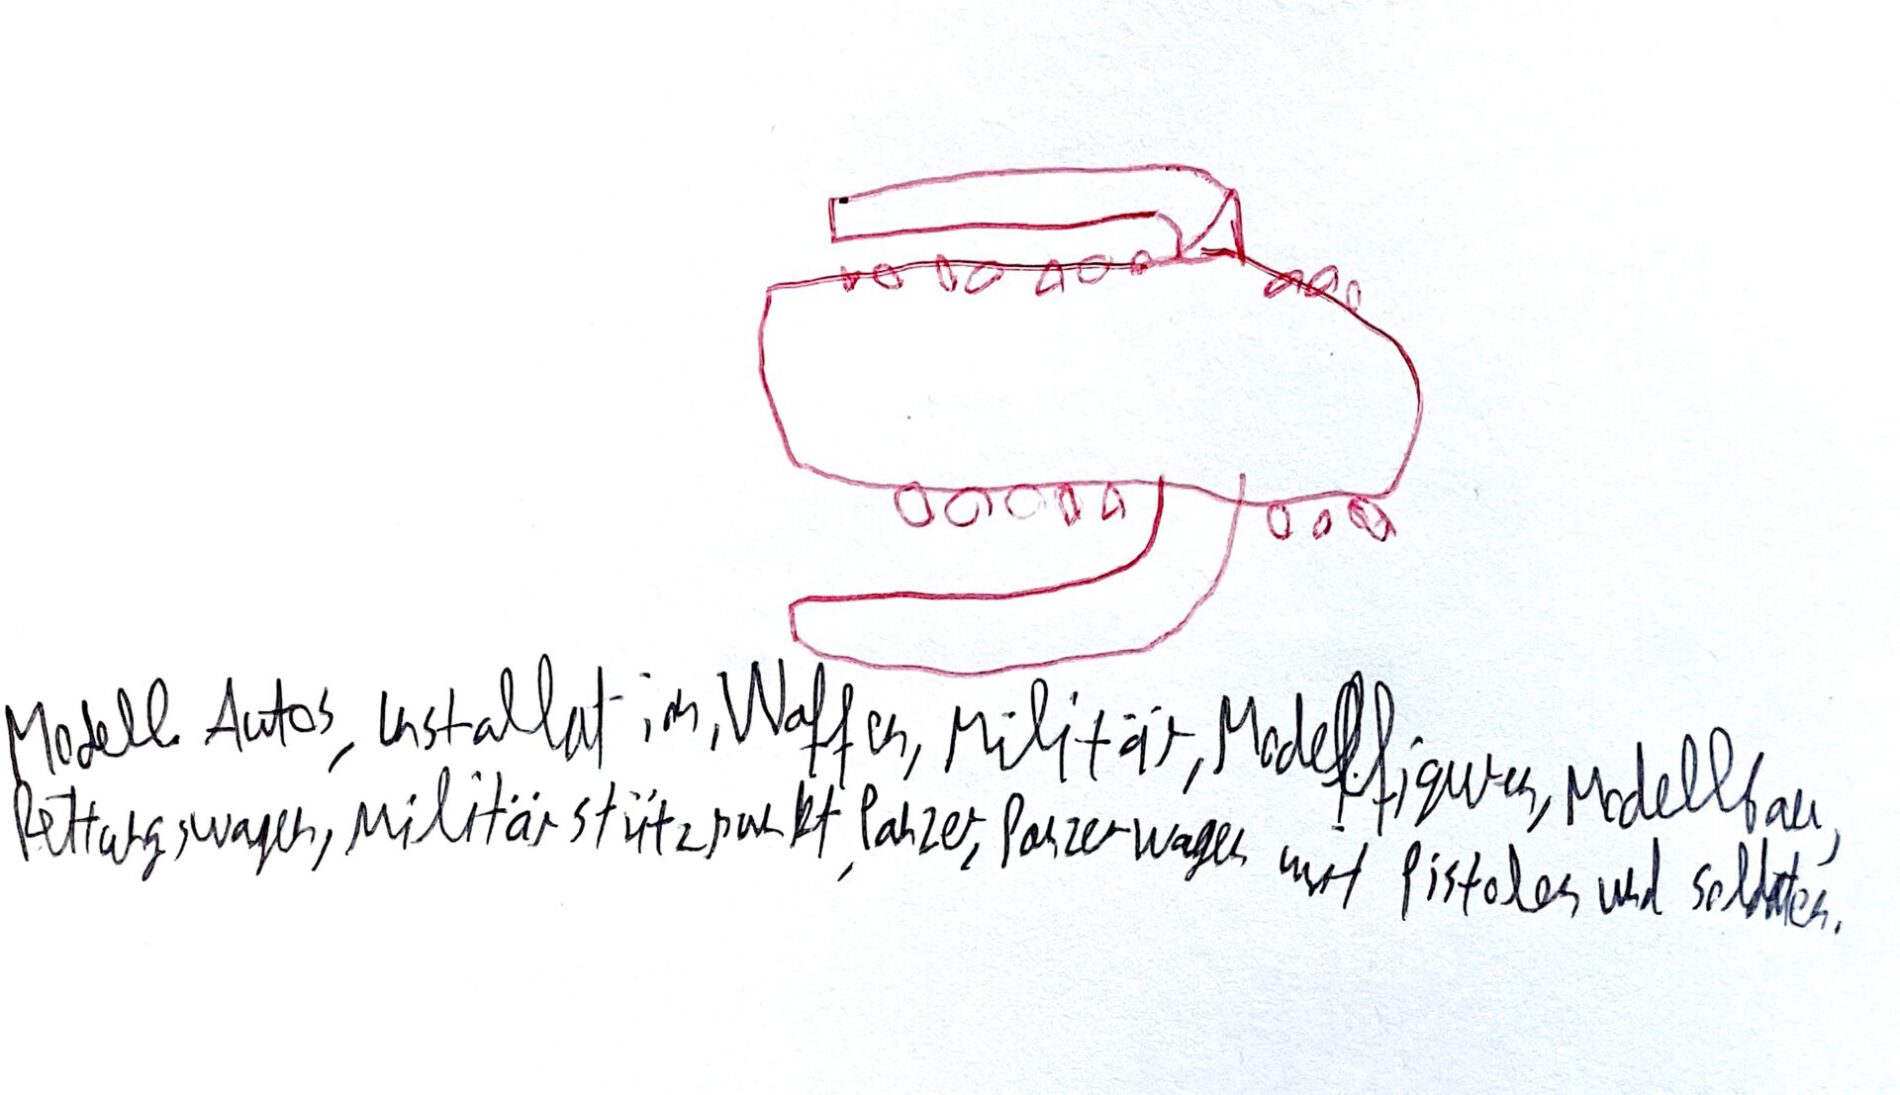 Modell Autos, Installation, Waffen, Militär, Modellfiguren, Modellbau,
Rettungswagen, Militärstützpunkt, Panzer, Panzerwagen mit Pistolen und Soldaten.